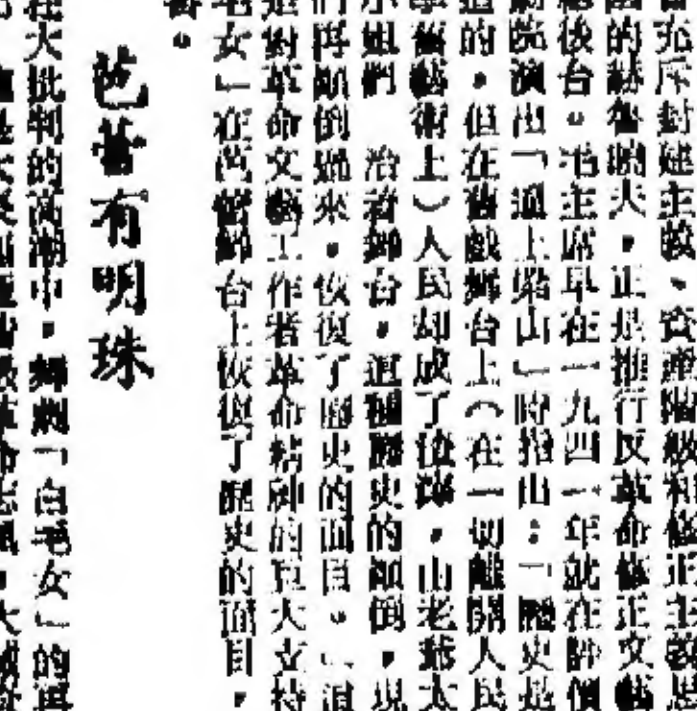 充斥封建主義、資產階級和修正主義思
的赫魯曉夫，正是推行反革命修正文藝
後台。毛主席早在一九四一年就在評價
劇院演出「逼上梁山」時指出：「歷史是
的，但在舊戲舞台上（在一切離開人民
舊藝術上）人民却成了渣滓，由老爺太
小姐們 治着舞台，這種歷史的顛倒，現
們再顛倒過來，恢復了歷史的面目。」這
是對革命文藝工作者革命精神的巨大支持
毛女」在芭蕾舞台上恢復了歷史的面目，
芭蕾有明珠
在大批判的高潮中，舞劇「白毛女」的再